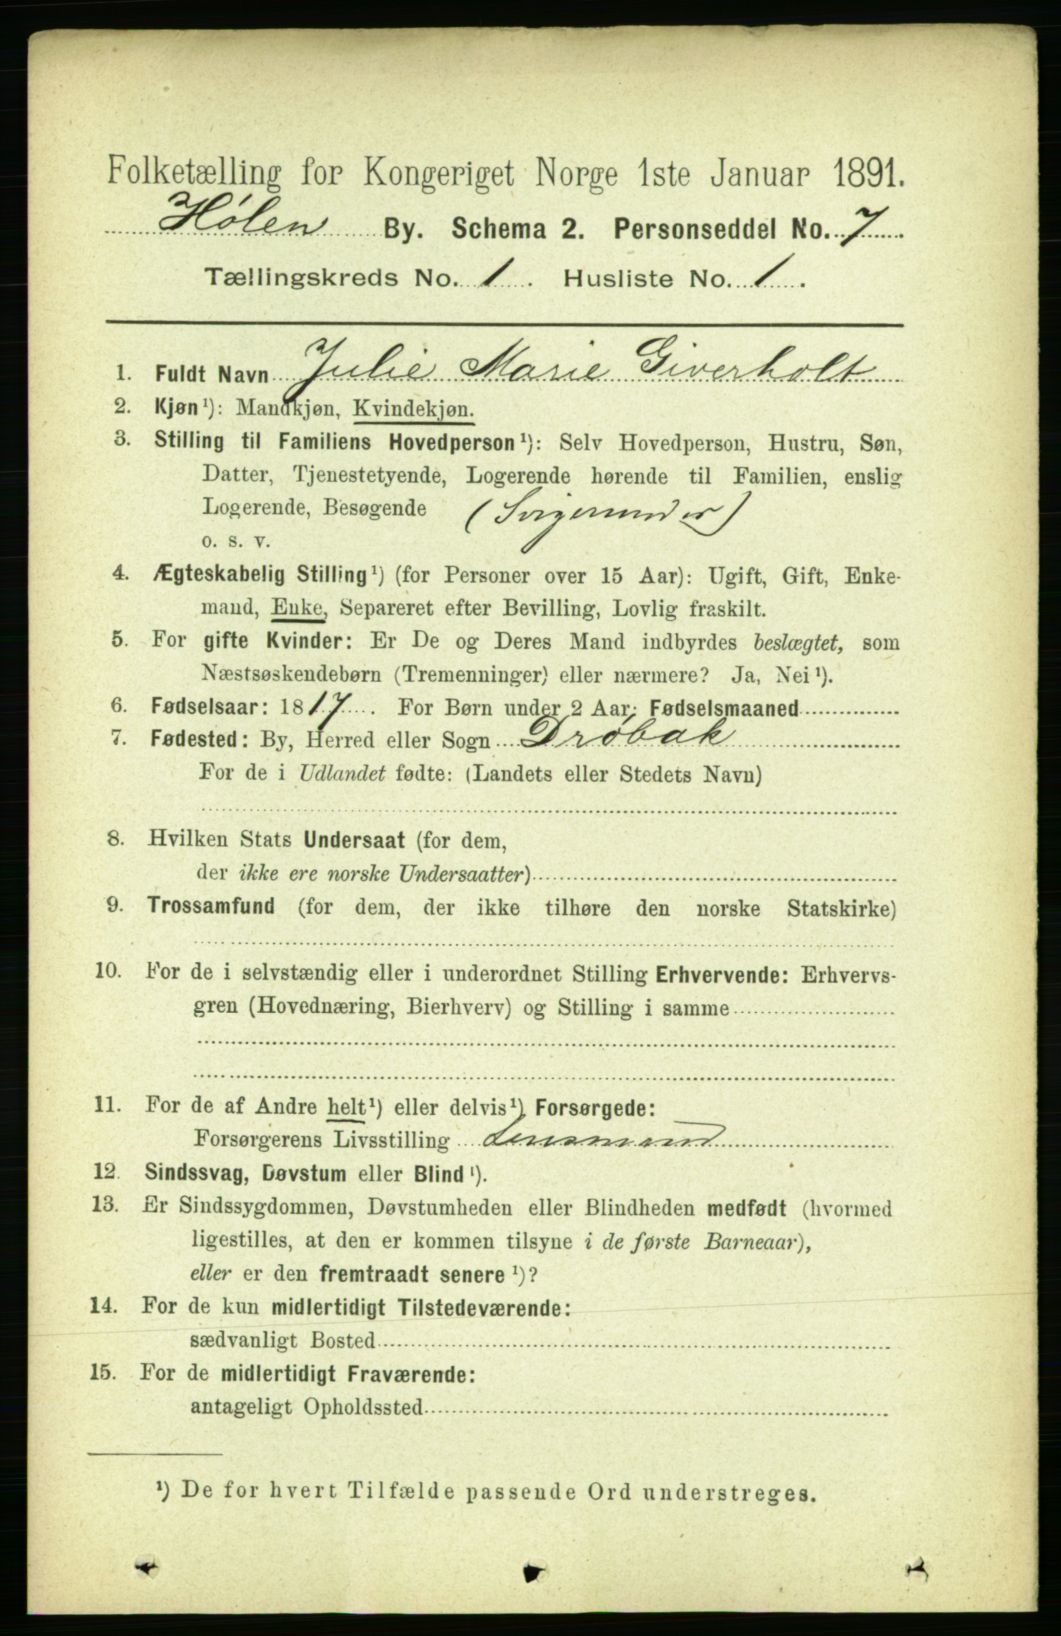 Folketælling for Kongeriget Norge 1ste Januar 1891.
Hølen By. Schema 2. Personseddel No. 7
Tællingskreds No. 1. Husliste No. 1.
1. Fuldt Navn Julie Marie Giverholt
2. Kjøn¹): Mandkjøn, Kvindekjøn.
3. Stilling til Familiens Hovedperson¹): Selv Hovedperson, Hustru, Søn,
Datter, Tjenestetyende, Logerende hørende til Familien, enslig
Logerende, Besøgende (Svigermoder)
o. s. v.
4. Ægteskabelig Stilling¹) (for Personer over 15 Aar): Ugift, Gift, Enke-
mand, Enke, Separeret efter Bevilling, Lovlig fraskilt.
5. For gifte Kvinder: Er De og Deres Mand indbyrdes beslægtet, som
Næstsøskendebørn (Tremenninger) eller nærmere? Ja, Nei¹).
6. Fødselsaar: 1817. For Børn under 2 Aar: Fødselsmaaned
7. Fødested: By, Herred eller Sogn Drøbak
For de i Udlandet fødte: (Landets eller Stedets Navn)
8. Hvilken Stats Undersaat (for dem,
der ikke ere norske Undersaatter)
9. Trossamfund (for dem, der ikke tilhøre den norske Statskirke)
10. For de i selvstændig eller i underordnet Stilling Erhvervende: Erhvervs-
gren (Hovednæring, Bierhverv) og Stilling i samme
11. For de af Andre helt¹) eller delvis¹) Forsørgede:
Forsørgerens Livsstilling Lensmand
12. Sindssvag, Døvstum eller Blind¹).
13. Er Sindssygdommen, Døvstumheden eller Blindheden medfødt (hvormed
ligestilles, at den er kommen tilsyne i de første Barneaar),
eller er den fremtraadt senere¹)?
14. For de kun midlertidigt Tilstedeværende:
sædvanligt Bosted
15. For de midlertidigt Fraværende:
antageligt Opholdssted
¹) De for hvert Tilfælde passende Ord understreges.